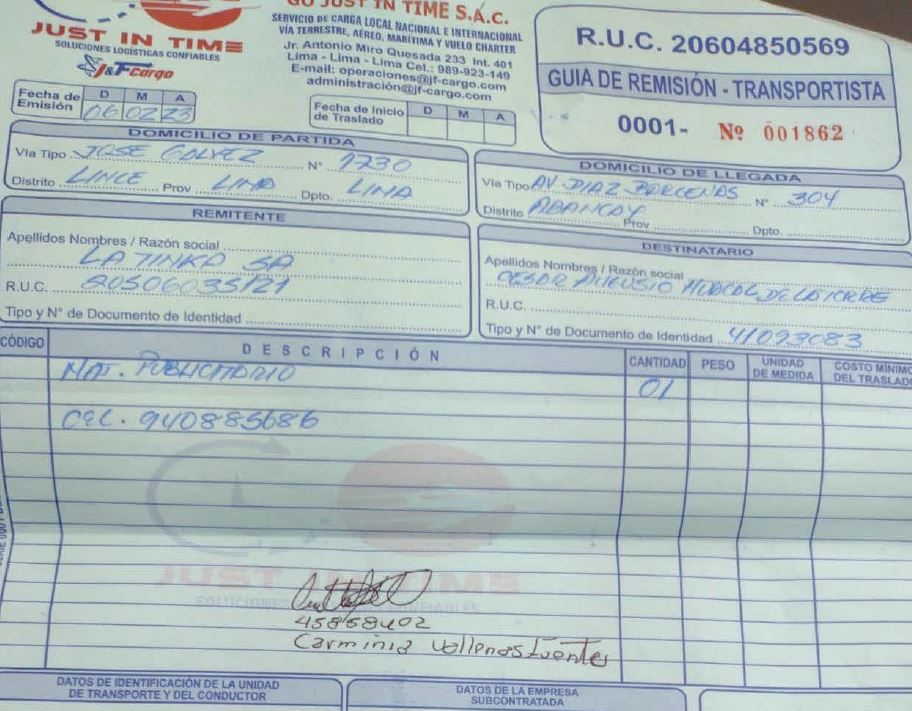 GO JUST IN TIME S.A.C.
SERVICIO DE CARGA LOCAL NACIONAL E INTERNACIONAL
VÍA TERRESTRE, AÉREO, MARÍTIMA Y VUELO CHARTER
Jr. Antonio Miro Quesada 233 Int. 401
Lima - Lima - Lima Cel.: 989-923-149
E-mail: operaciones@jf-cargo.com
administración@jf-cargo.com
JUST IN TIME
SOLUCIONES LOGÍSTICAS CONFIABLES
J&F Cargo
R.U.C. 20604850569
GUIA DE REMISIÓN - TRANSPORTISTA
0001- Nº 001862
Fecha de Emisión D M A
06 02 23
Fecha de Inicio de Traslado D M A
DOMICILIO DE PARTIDA
Vía Tipo JOSE GALVEZ N° 1730
Distrito LINCE Prov LIMA Dpto. LIMA
DOMICILIO DE LLEGADA
Vía Tipo AV DIAZ BARCENAS N° 304
Distrito ABANCAY Prov Dpto.
REMITENTE
Apellidos Nombres / Razón social
LA TINKA SA
R.U.C. 20506035121
Tipo y N° de Documento de Identidad
DESTINATARIO
Apellidos Nombres / Razón social
CESAR AUGUSTO DE LA TORRE
R.U.C.
Tipo y N° de Documento de Identidad 41093083
CÓDIGO DESCRIPCIÓN CANTIDAD PESO UNIDAD DE MEDIDA COSTO MÍNIMO DEL TRASLADO
MAT. PUBLICITARIO 01
CEL. 940885686
JUST IN TIME
SOLUCIONES CONFIABLES
45868402
Carminia Vallenas Fuentes
DATOS DE IDENTIFICACIÓN DE LA UNIDAD DE TRANSPORTE Y DEL CONDUCTOR
DATOS DE LA EMPRESA SUBCONTRATADA